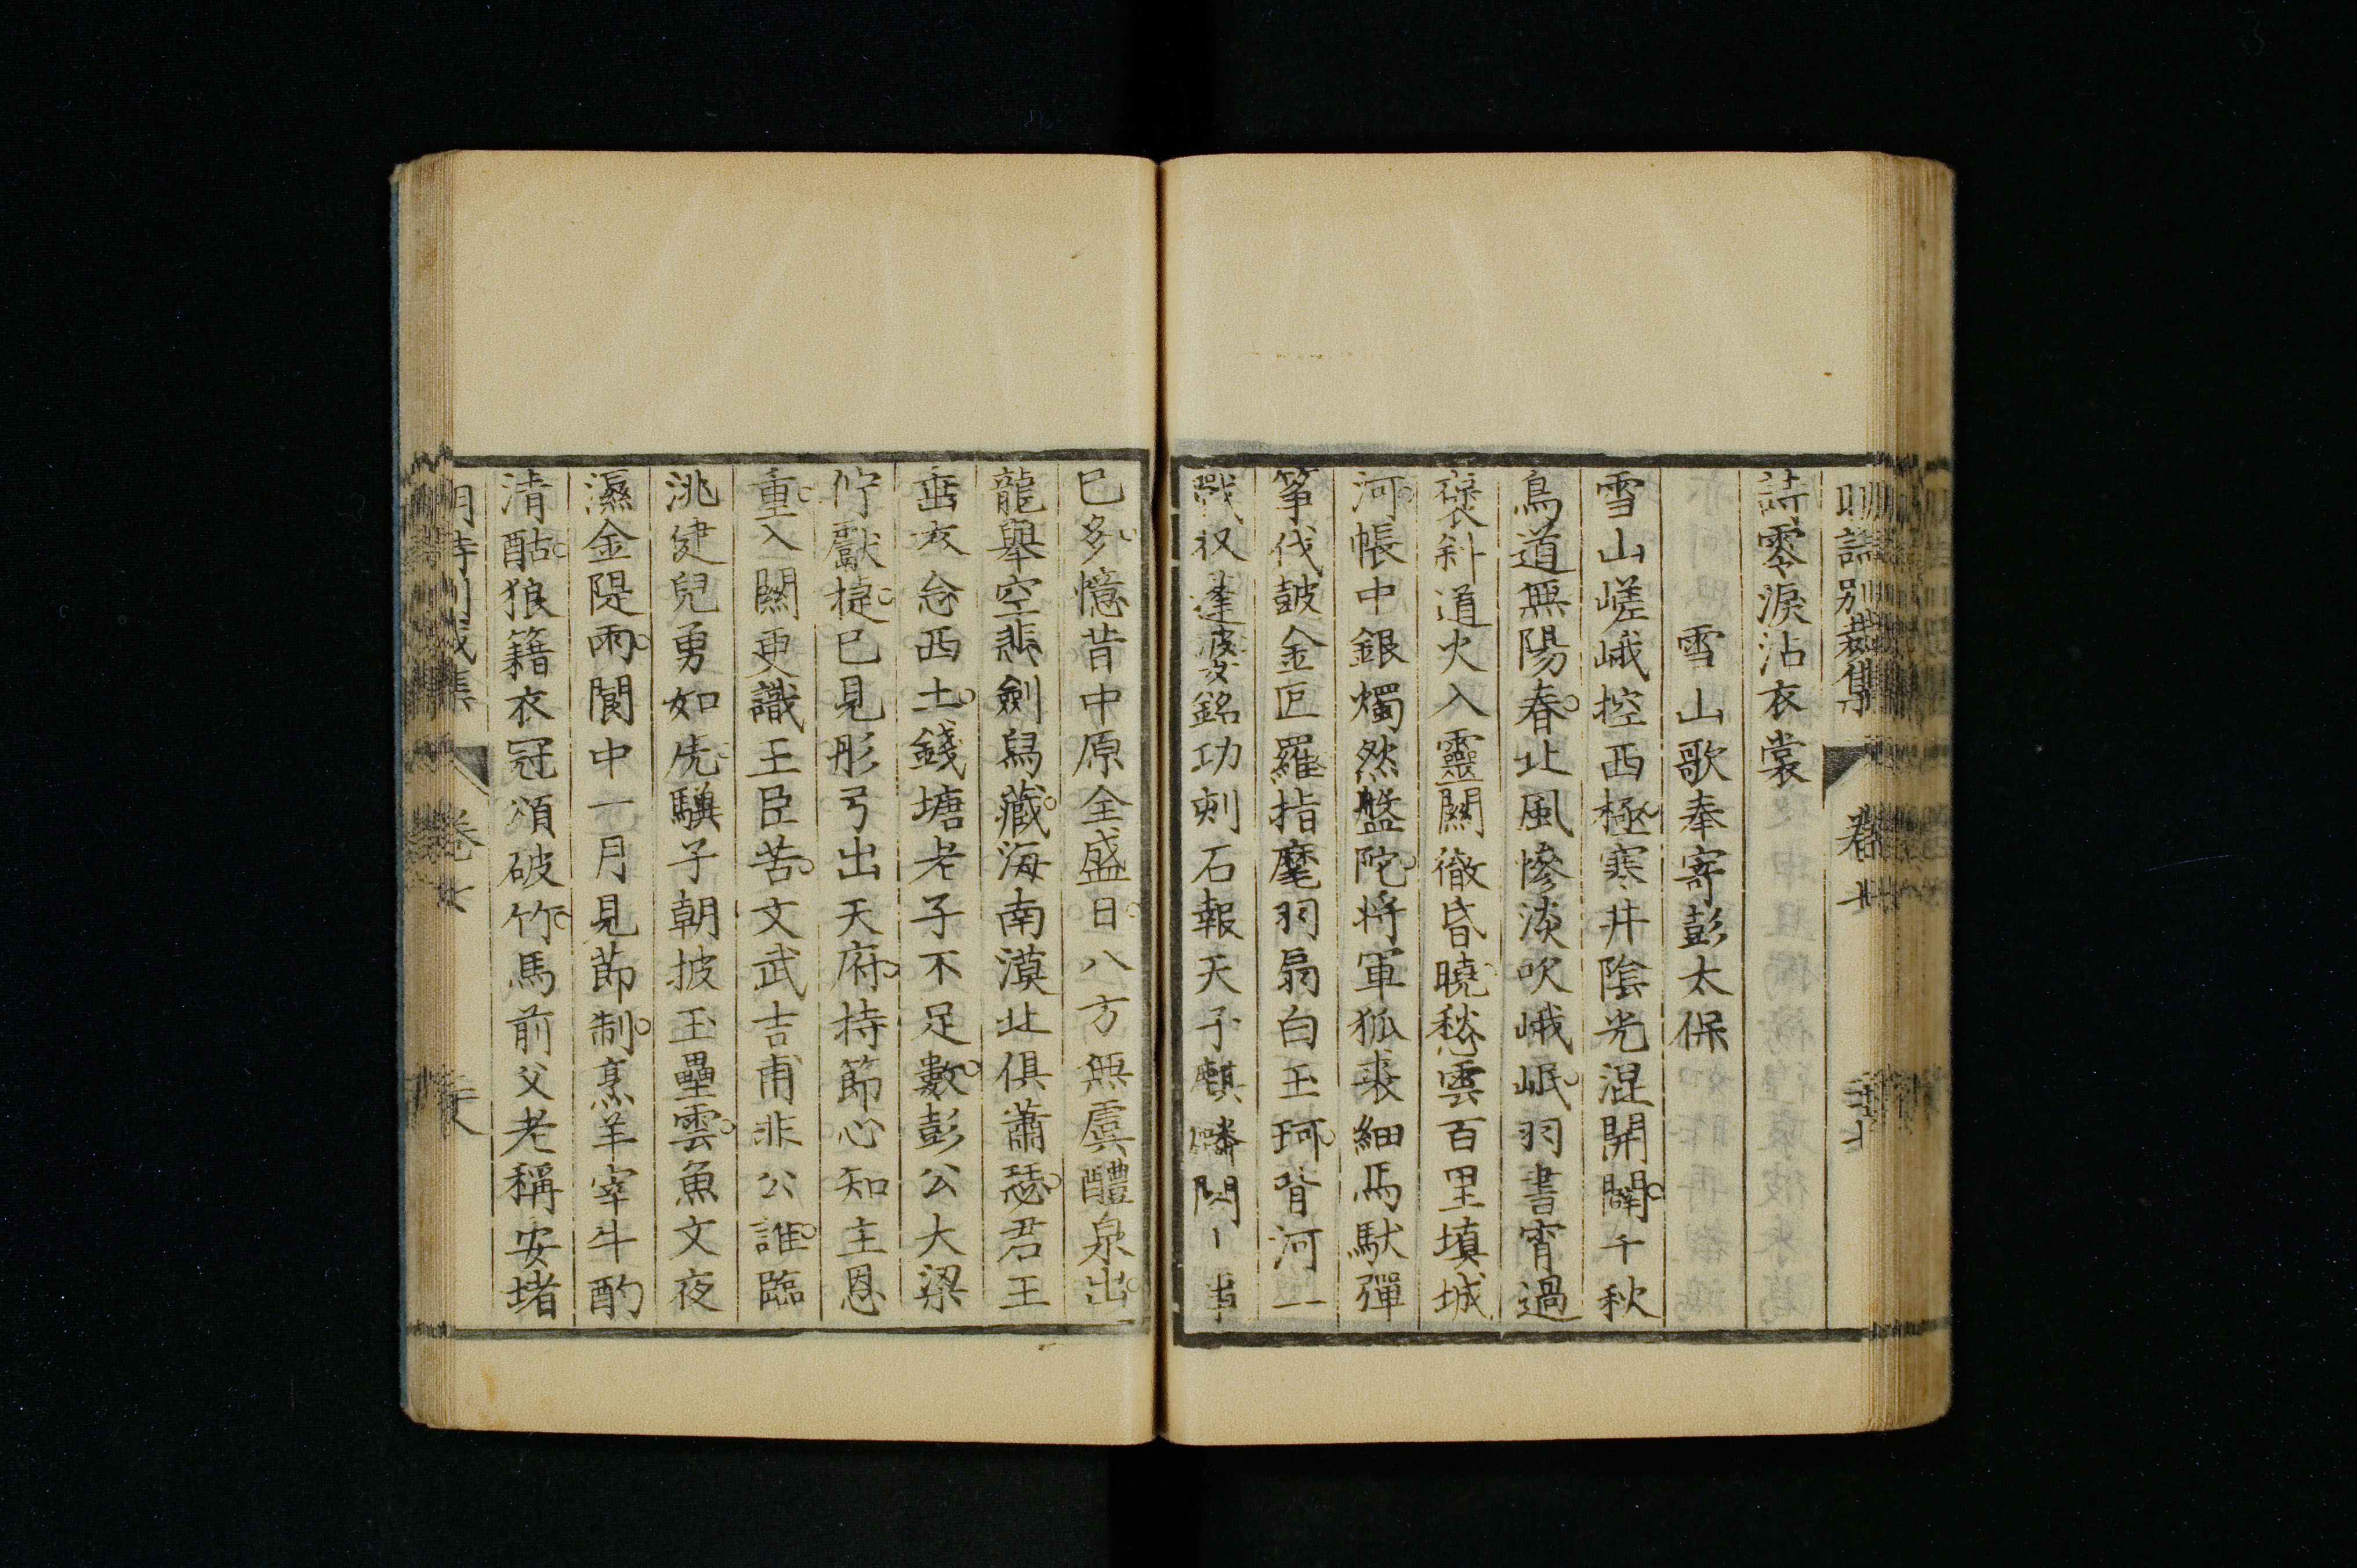 明詩別裁集 卷七
詩零淚沾衣裳
雪山歌奉寄彭太保
雪山嵯峨控西極寒井陰光混開闢千秋
鳥道無陽春北風慘淡吹峨岷羽書宵過
襃斜道火入靈關徹昏曉愁雲百里填城
河帳中銀燭然盤陀將軍狐裘細馬馱彈
筝伐鼓金叵羅指麾羽扇白玉珂背河一
戰收蓬婆銘功刺石報天子麒麟閣上事
已多憶昔中原全盛日八方無虞醴泉出
龍舉空悲劍舄藏海南漠北俱蕭瑟君王
垂衣念西土錢塘老子不足數彭公大梁
佇獻捷已見彤弓出天府持節心知主恩
重入關更識王臣苦文武吉甫非公誰臨
洮健兒勇如虎騏子朝披玉壘雲魚文夜
濕金隄雨閬中一月見節制烹羊宰牛酌
清酤狼籍衣冠頌破竹馬前父老稱安堵